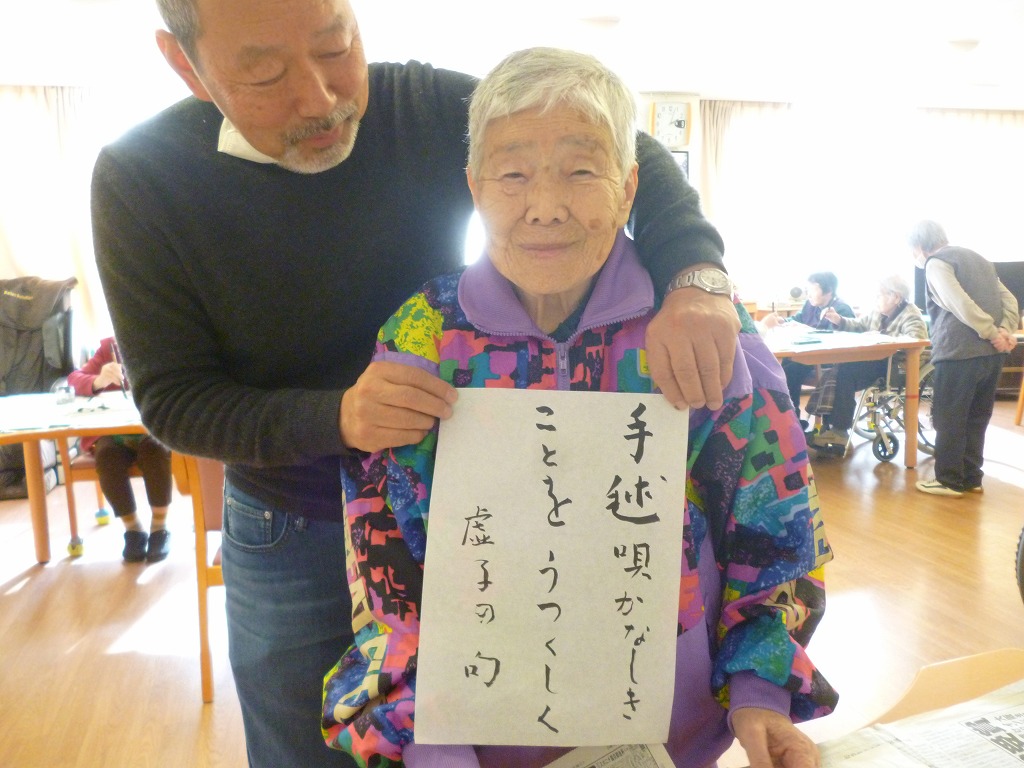 手毬唄かなしき
ことをうつくしく
虚子の句